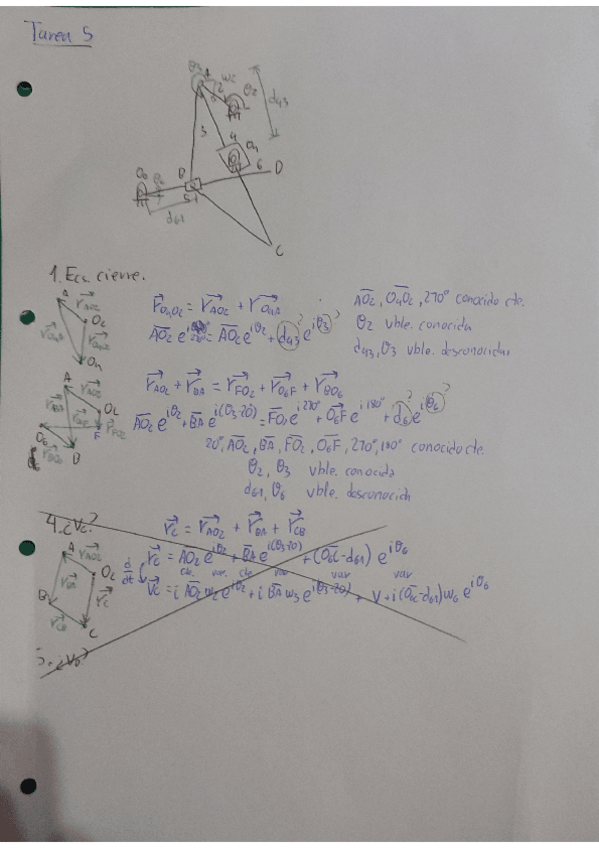 Tarea 5
θ3
A
ω2
2
θ2
d43
3
4
O4
B
6
D
O6
5
d61
C
1. Ecs. cierre.
A
O2
O4
r⃗O4O2 = r⃗AO2 + r⃗O4A
AO2, O4O2, 270° conocido cte.
AO2 e^iθ2 + d43 e^iθ3
θ2 vble. conocida
d43, θ3 vble. desconocidas
r⃗AO2 + r⃗BA = r⃗FO2 + r⃗O6F + r⃗BO6
AO2 e^iθ2 + BA e^i(θ3-20) = FO2 e^i270° + O6F e^i180° + d61 e^iθ6
20°, AO2, BA, FO2, O6F, 270°, 180° conocido cte.
θ2, θ3 vble. conocida
d61, θ6 vble. desconocida
4. ¿Vc?
r⃗c = r⃗AO2 + r⃗BA + r⃗CB
r⃗c = AO2 e^iθ2 + BA e^i(θ3-20) + (O6C - d61) e^iθ6
cte. var. cte var var var
d/dt
v⃗c = i AO2 ω2 e^iθ2 + i BA ω3 e^i(θ3-20) + v + i (O6C - d61) ω6 e^iθ6
A
O2
B
C
5. ¿V6?